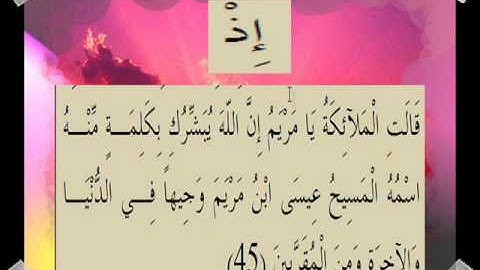 إِذْ
قَالَتِ الْمَلآئِكَةُ يَا مَرْيَمُ إِنَّ اللّهَ يُبَشِّرُكِ بِكَلِمَـــةٍ مِّنْـــهُ
اسْمُهُ الْمَسِيحُ عِيسَى ابْنُ مَرْيَمَ وَجِيهاً فِـــي الدُّنْيَـــا
وَالآخِرَةِ وَمِنَ الْمُقَرَّبِينَ (45)